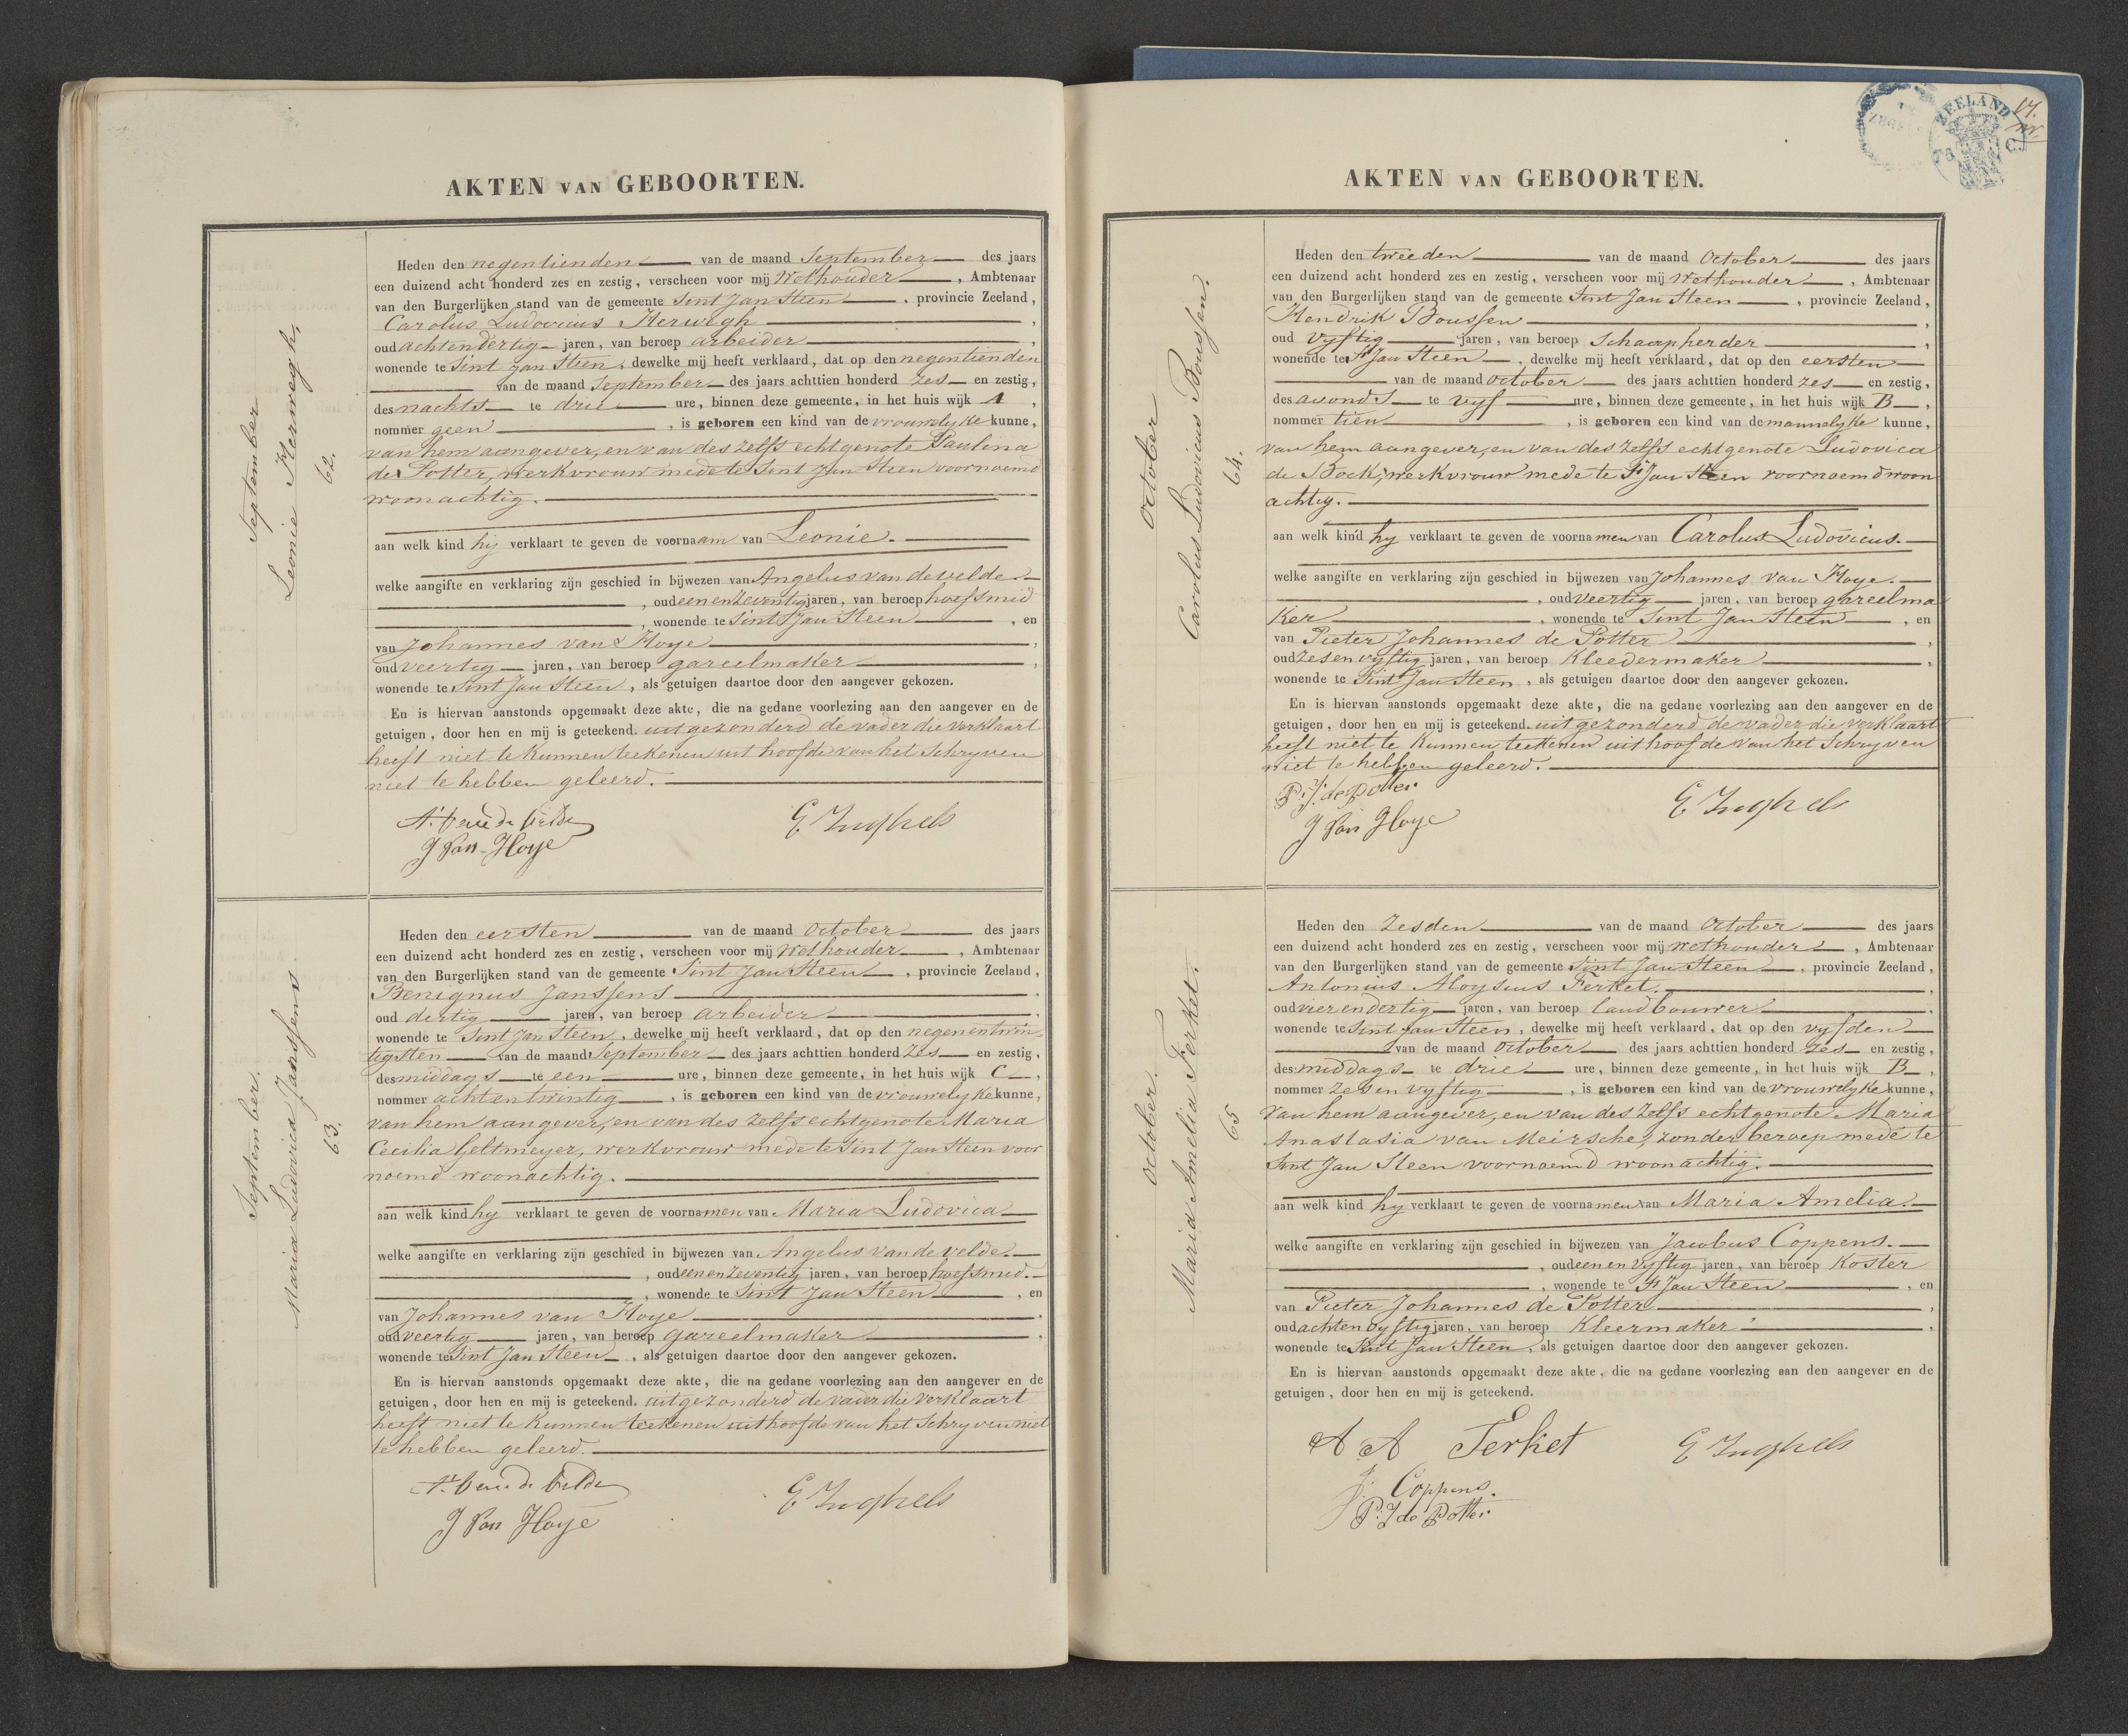 AKTEN VAN GEBOORTEN.
September
Leonie Herwegh.
62.
Heden den negentienden van de maand September des jaars
een duizend acht honderd zes en zestig, verscheen voor mij Wethouder, Ambtenaar
van den Burgerlijken stand van de gemeente Sint Jan Steen, provincie Zeeland,
Carolus Ludovicus Herwegh,
oud achtendertig jaren, van beroep arbeider,
wonende te Sint Jan Steen, dewelke mij heeft verklaard, dat op den negentienden
van de maand September des jaars achttien honderd zes en zestig,
des nachts te drie ure, binnen deze gemeente, in het huis wijk A,
nommer geen, is geboren een kind van de vrouwelyke kunne,
van hem aangever, en van des zelfs echtgenote Paulina
de Potter, werkvrouw mede te Sint Jan Steen voornoemd
woonachtig.
aan welk kind hij verklaart te geven de voornaam van Leonie.
welke aangifte en verklaring zijn geschied in bijwezen van Angelus van de velde
, oud eenenzeventig jaren, van beroep hoefsmid
, wonende te Sint Jan Steen, en
van Johannes van Hoye,
oud veertig jaren, van beroep gareelmaker,
wonende te Sint Jan Steen, als getuigen daartoe door den aangever gekozen.
En is hiervan aanstonds opgemaakt deze akte, die na gedane voorlezing aan den aangever en de
getuigen, door hen en mij is geteekend. uitgezonderd de vader die verklaart
heeft niet te kunnen teekenen uit hoofde van het schryven
niet te hebben geleerd.
A. van de Velde
E Inghels
J Van Hoye
September.
Maria Ludovica Janssens.
63.
Heden den eersten van de maand October des jaars
een duizend acht honderd zes en zestig, verscheen voor mij Wethouder, Ambtenaar
van den Burgerlijken stand van de gemeente Sint Jan Steen, provincie Zeeland,
Benignus Janssens,
oud dertig jaren, van beroep arbeider,
wonende te Sint Jan Steen, dewelke mij heeft verklaard, dat op den negenentwin
tigsten van de maand September des jaars achttien honderd zes en zestig,
des middags te een ure, binnen deze gemeente, in het huis wijk C,
nommer achtentwintig, is geboren een kind van de vrouwelyke kunne,
van hem aangever, en van des zelfs echtgenote Maria
Cecilia Geltmeyer, werkvrouw mede te Sint Jan Steen voor
noemd woonachtig.
aan welk kind hy verklaart te geven de voornamen van Maria Ludovica
welke aangifte en verklaring zijn geschied in bijwezen van Angelus van de velde.
, oud eenenzeventig jaren, van beroep hoefsmid.
, wonende te Sint Jan Steen, en
van Johannes van Hoye,
oud veertig jaren, van beroep gareelmaker,
wonende te Sint Jan Steen, als getuigen daartoe door den aangever gekozen.
En is hiervan aanstonds opgemaakt deze akte, die na gedane voorlezing aan den aangever en de
getuigen, door hen en mij is geteekend. uitgezonderd de vader die verklaart
heeft niet te kunnen teekenen uit hoofde van het schryven niet
te hebben geleerd.
A. van de Velde
E Inghels
J Van Hoye
ZEELAND
17.
AKTEN VAN GEBOORTEN.
October
Carolus Ludovicus Boussen.
64.
Heden den tweeden van de maand October des jaars
een duizend acht honderd zes en zestig, verscheen voor mij Wethouder, Ambtenaar
van den Burgerlijken stand van de gemeente Sint Jan Steen, provincie Zeeland,
Hendrik Boussen,
oud vyftig jaren, van beroep Schaapherder,
wonende te St Jan Steen, dewelke mij heeft verklaard, dat op den eersten
van de maand October des jaars achttien honderd zes en zestig,
des avonds te vyf ure, binnen deze gemeente, in het huis wijk B,
nommer tien, is geboren een kind van de mannelyke kunne,
van hem aangever, en van des zelfs echtgenote Ludovica
de Bock, werkvrouw mede te St Jan Steen voornoemd woon
achtig.
aan welk kind hy verklaart te geven de voornamen van Carolus Ludovicus.
welke aangifte en verklaring zijn geschied in bijwezen van Johannes van Hoye.
, oud veertig jaren, van beroep gareelma
ker, wonende te Sint Jan Steen, en
van Pieter Johannes de Potter,
oud zesenvyftig jaren, van beroep Kleedermaker,
wonende te Sint Jan Steen, als getuigen daartoe door den aangever gekozen.
En is hiervan aanstonds opgemaakt deze akte, die na gedane voorlezing aan den aangever en de
getuigen, door hen en mij is geteekend. uitgezonderd de vader die verklaart
heeft niet te kunnen teekenen uit hoofde van het schryven
niet te hebben geleerd.
P. J. de Potter
E Inghels
J Van Hoye
October.
Maria Amelia Ferket.
65
Heden den Zesden van de maand October des jaars
een duizend acht honderd zes en zestig, verscheen voor mij Wethouder, Ambtenaar
van den Burgerlijken stand van de gemeente Sint Jan Steen, provincie Zeeland,
Antonius Aloysius Ferket.,
oud vierendertig jaren, van beroep landbouwer,
wonende te Sint Jan Steen, dewelke mij heeft verklaard, dat op den vyfden
van de maand October des jaars achttien honderd zes en zestig,
des middags te drie ure, binnen deze gemeente, in het huis wijk B,
nommer zesenvyftig, is geboren een kind van de vrouwelyke kunne,
van hem aangever, en van des zelfs echtgenote Maria
Anastasia van Meirsche, zonder beroep mede te
Sint Jan Steen voornoemd woonachtig.
aan welk kind hy verklaart te geven de voornamen van Maria Amelia.
welke aangifte en verklaring zijn geschied in bijwezen van Jacobus Coppens.
, oud eenenvyftig jaren, van beroep Koster
, wonende te St Jan Steen, en
van Pieter Johannes de Potter,
oud achtenvyftig jaren, van beroep Kleermaker,
wonende te Sint Jan Steen, als getuigen daartoe door den aangever gekozen.
En is hiervan aanstonds opgemaakt deze akte, die na gedane voorlezing aan den aangever en de
getuigen, door hen en mij is geteekend.
A A Ferket
E Inghels
J: Coppens.
P. J de Potter